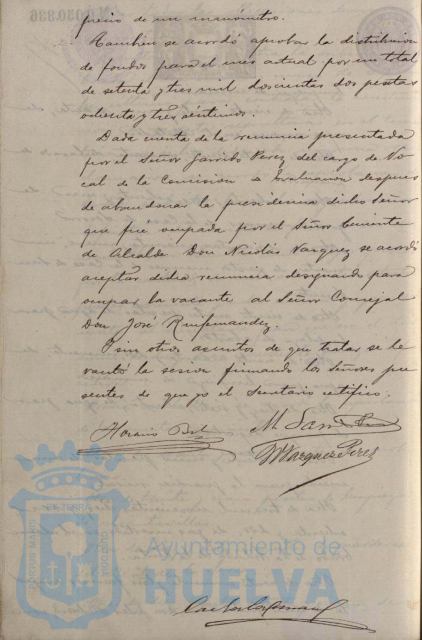 precio de un manómetro.
Tambien se acordó aprobar la distribucion
de fondos para el mes actual por un total
de setenta y tres mil doscientas dos pesetas
ochenta y tres céntimos.
Dada cuenta de la renuncia presentada
por el Señor Garrido Perez del cargo de Vo
cal de la Comision de Evaluacion despues
de abandonar la presidencia dicho Señor
que fué ocupada por el Señor Teniente
de Alcalde Don Nicolás Vazquez se acordó
aceptar dicha renuncia designando para
ocupar la vacante al Señor Concejal
Don José Ruifernandez.
I sin otros asuntos de que tratar se le
vantó la sesion firmando los Señores pre
sentes de que yo el Secretario certifico.
Horacio Bel
M. Garrido
N Vazquez Perez
Ayuntamiento de
HUELVA
PORTUS MARIS
ET TERRÆ
CUSTODIA